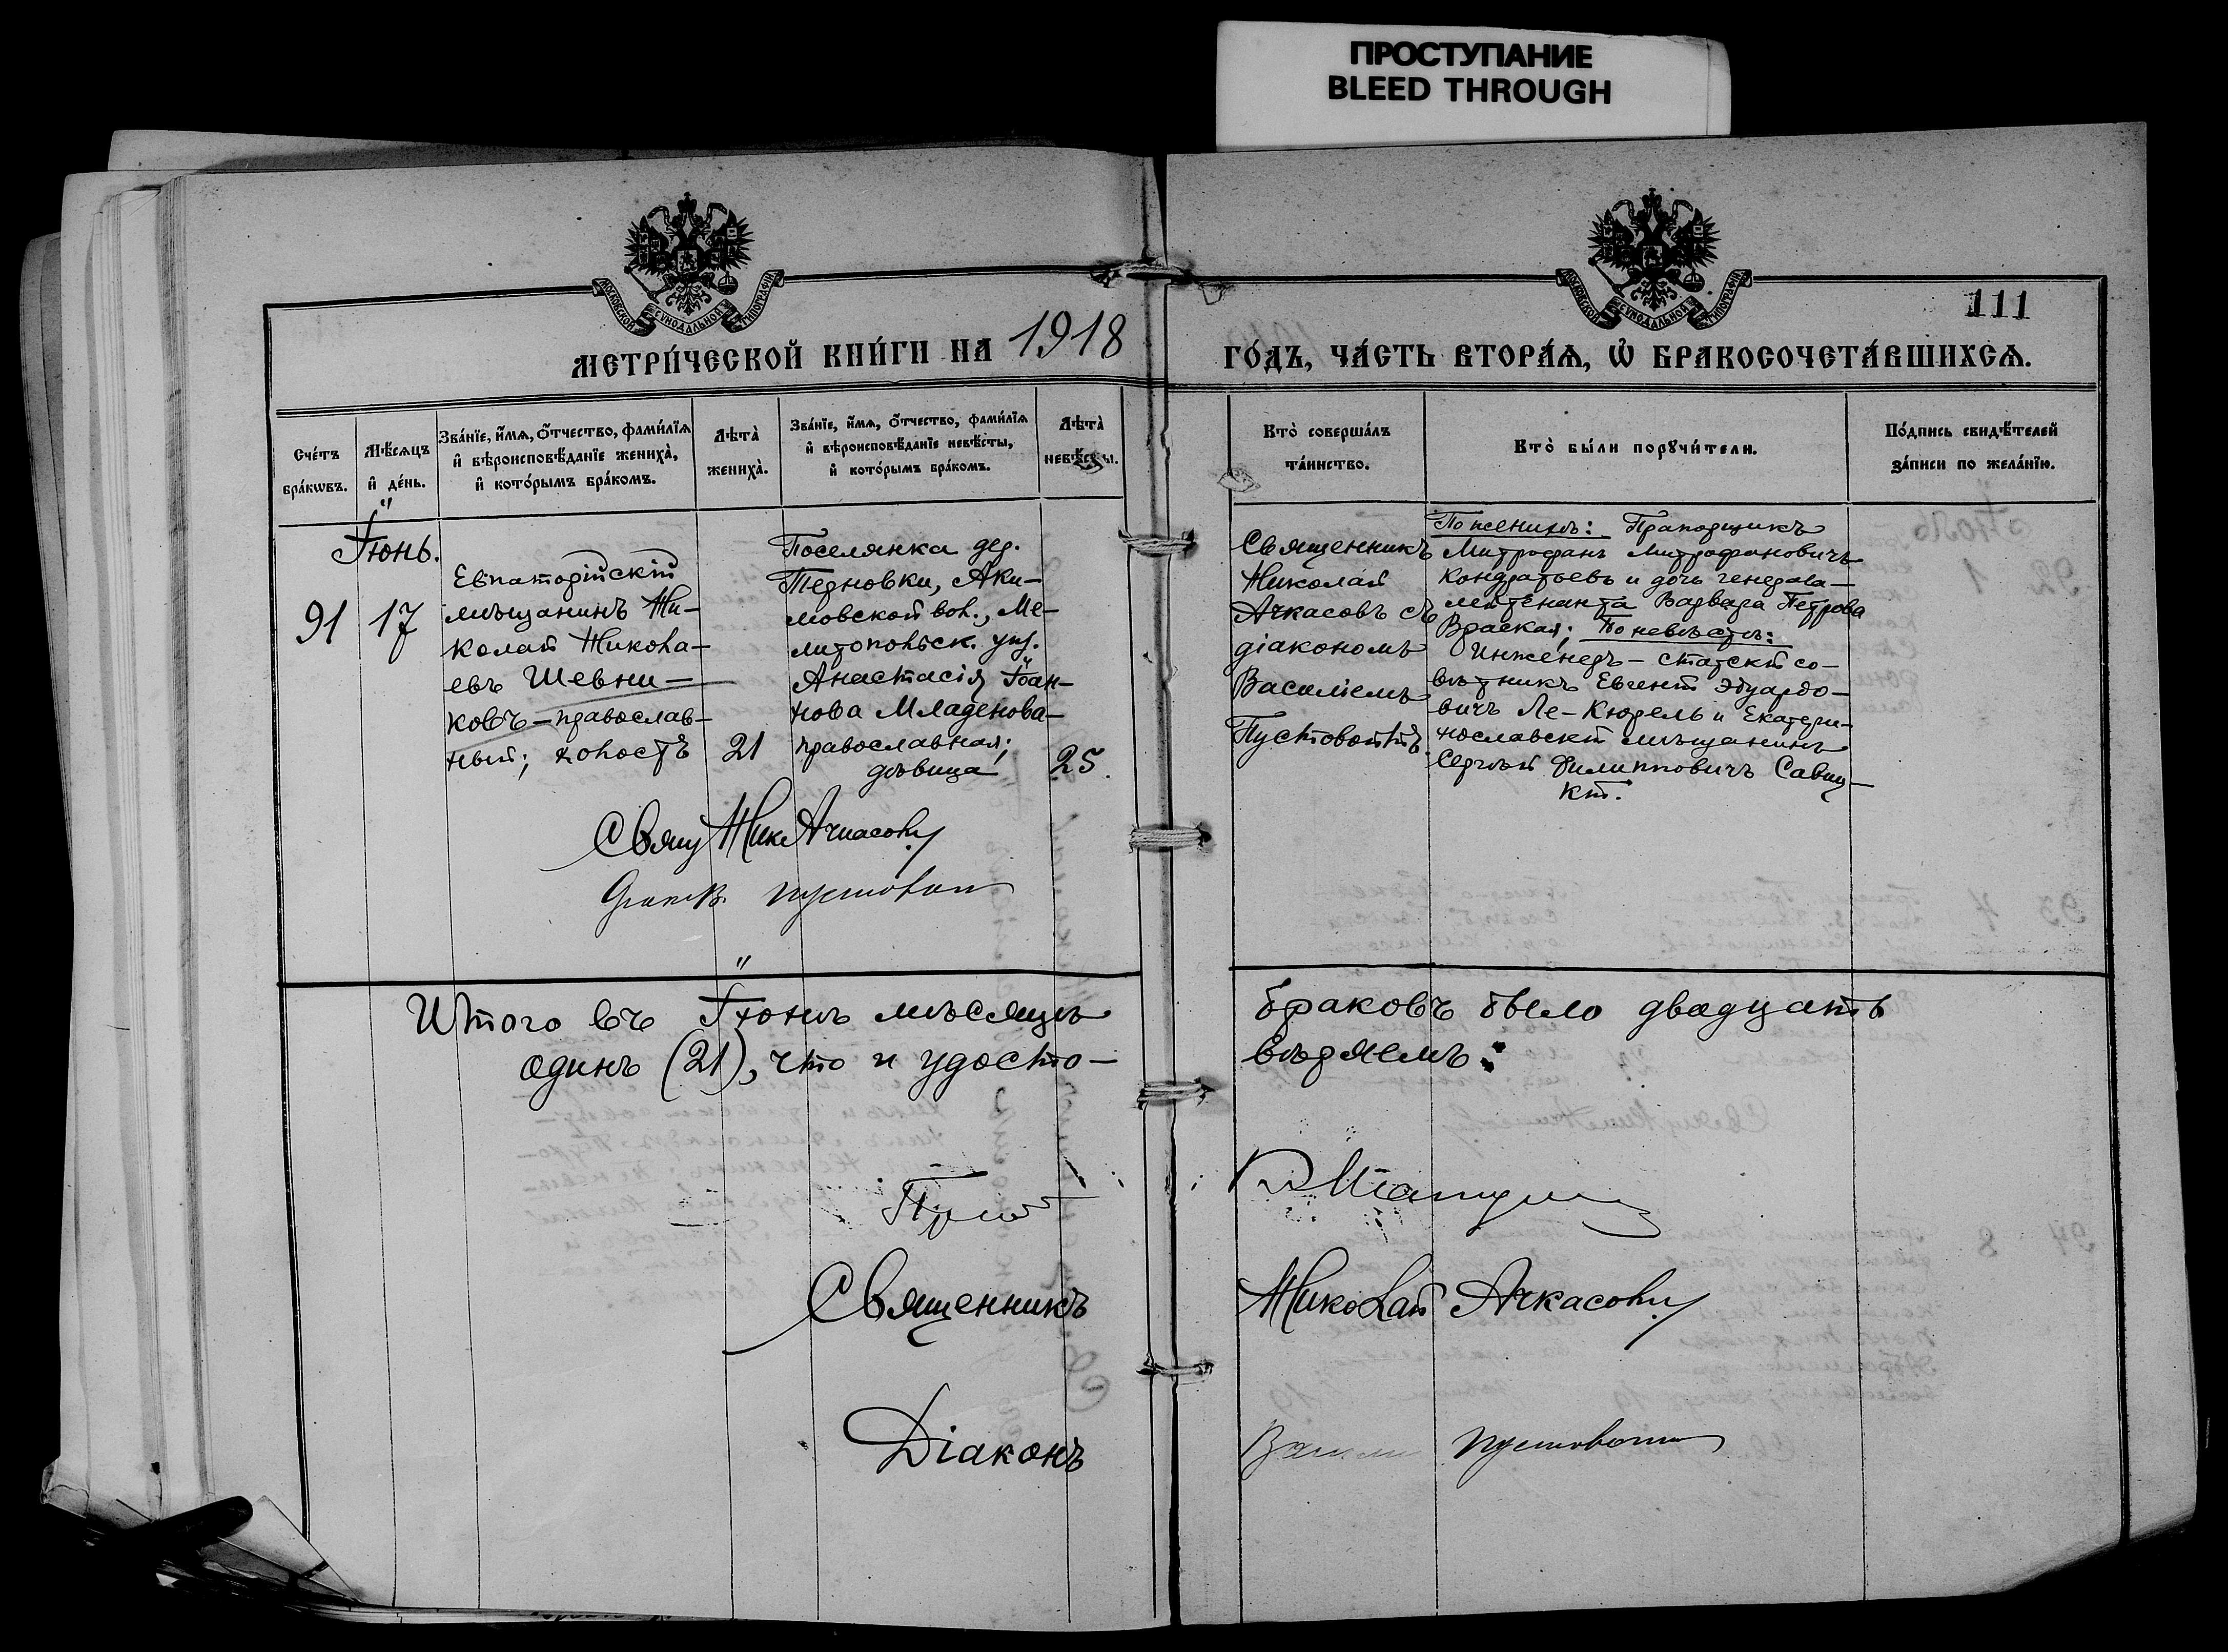 ПРОСТУПАНИЕ
BLEED THROUGH
МОСКОВСКОЙ СѴНОДАЛЬНОЙ ТИПОГРАФІИ
МОСКОВСКОЙ СѴНОДАЛЬНОЙ ТИПОГРАФІИ
111
МЕТРИ́ЧЕСКОЙ КНИ́ГИ НА 1918
ГО́ДЪ, ЧА́СТЬ ВТОРА́Я, Ѡ҆ БРАКОСОЧЕТА́ВШИХСЯ.
Сче́тъ
бра́кѡвъ.
Мѣ́сяцъ
и҆ де́нь.
Зва́нїе, и҆́мя, ѻ҆́тчество, фами́лїя
и҆ вѣроисповѣ́данїе жениха̀,
и҆ кото́рымъ бра́комъ.
Лѣ́та̀
жениха̀.
Зва́нїе, и҆́мя, ѻ҆́тчество, фами́лїя
и҆ вѣроисповѣ́данїе невѣ́сты,
и҆ кото́рымъ бра́комъ.
Лѣ́та̀
невѣ́сты.
Кто̀ соверша́лъ
та́инство.
Кто̀ бы́ли порꙋчи́тели.
По́дпись свидѣ́телей
за́писи по жела́нїю.
Іюнь.
91
17
Евпаторійскій
мѣщанинъ Ни-
колай Никола-
евъ Шевни-
ковъ - православ-
ный; холостъ
21
Поселянка дер.
Терновки, Аки-
мовской вол., Ме-
литопольск. уѣз.
Анастасія Іоан-
нова Младенова -
православная;
дѣвица
25.
Священникъ
Николай
Ачкасовъ съ
діакономъ
Василіемъ
Пустовойтъ.
По женихѣ: Прапорщикъ
Митрофанъ Митрофановичъ
Кондратьевъ и дочь генерала-
лейтенанта Варвара Петрова
Враская; По невѣстѣ:
Инженеръ - статскій со-
вѣтникъ Евгеній Эдуардо-
вичъ Ле-Кюрель и Екатери-
нославскій мѣщанинъ
Сергѣй Филипповичъ Савиц-
кій.
Свящ Ник Ачкасовъ
Пустовойт
Итого въ Іюнѣ мѣсяцѣ браковъ было двадцать
одинъ (21), что и удосто- вѣряемъ:
Священникъ Николай Ачкасовъ
Діаконъ Василій Пустовойт